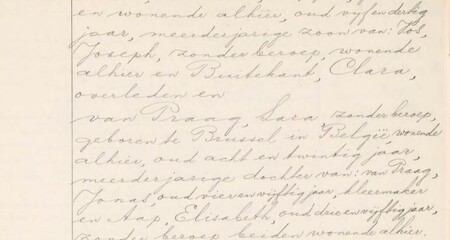 en wonende alhier, oud vijf en dertig
jaar, meerderjarige zoon van: Vos,
Joseph, zonder beroep, wonende
alhier en Buitekant, Clara,
overleden en
van Praag, Sara zonder beroep,
geboren te Brussel in België wonende
alhier, oud acht en twintig jaar,
meerderjarige dochter van: van Praag,
Jonas, oud vier en vijftig jaar, kleermaker
en Aap, Elisabeth, oud drie en vijftig jaar,
zonder beroep beiden wonende alhier.